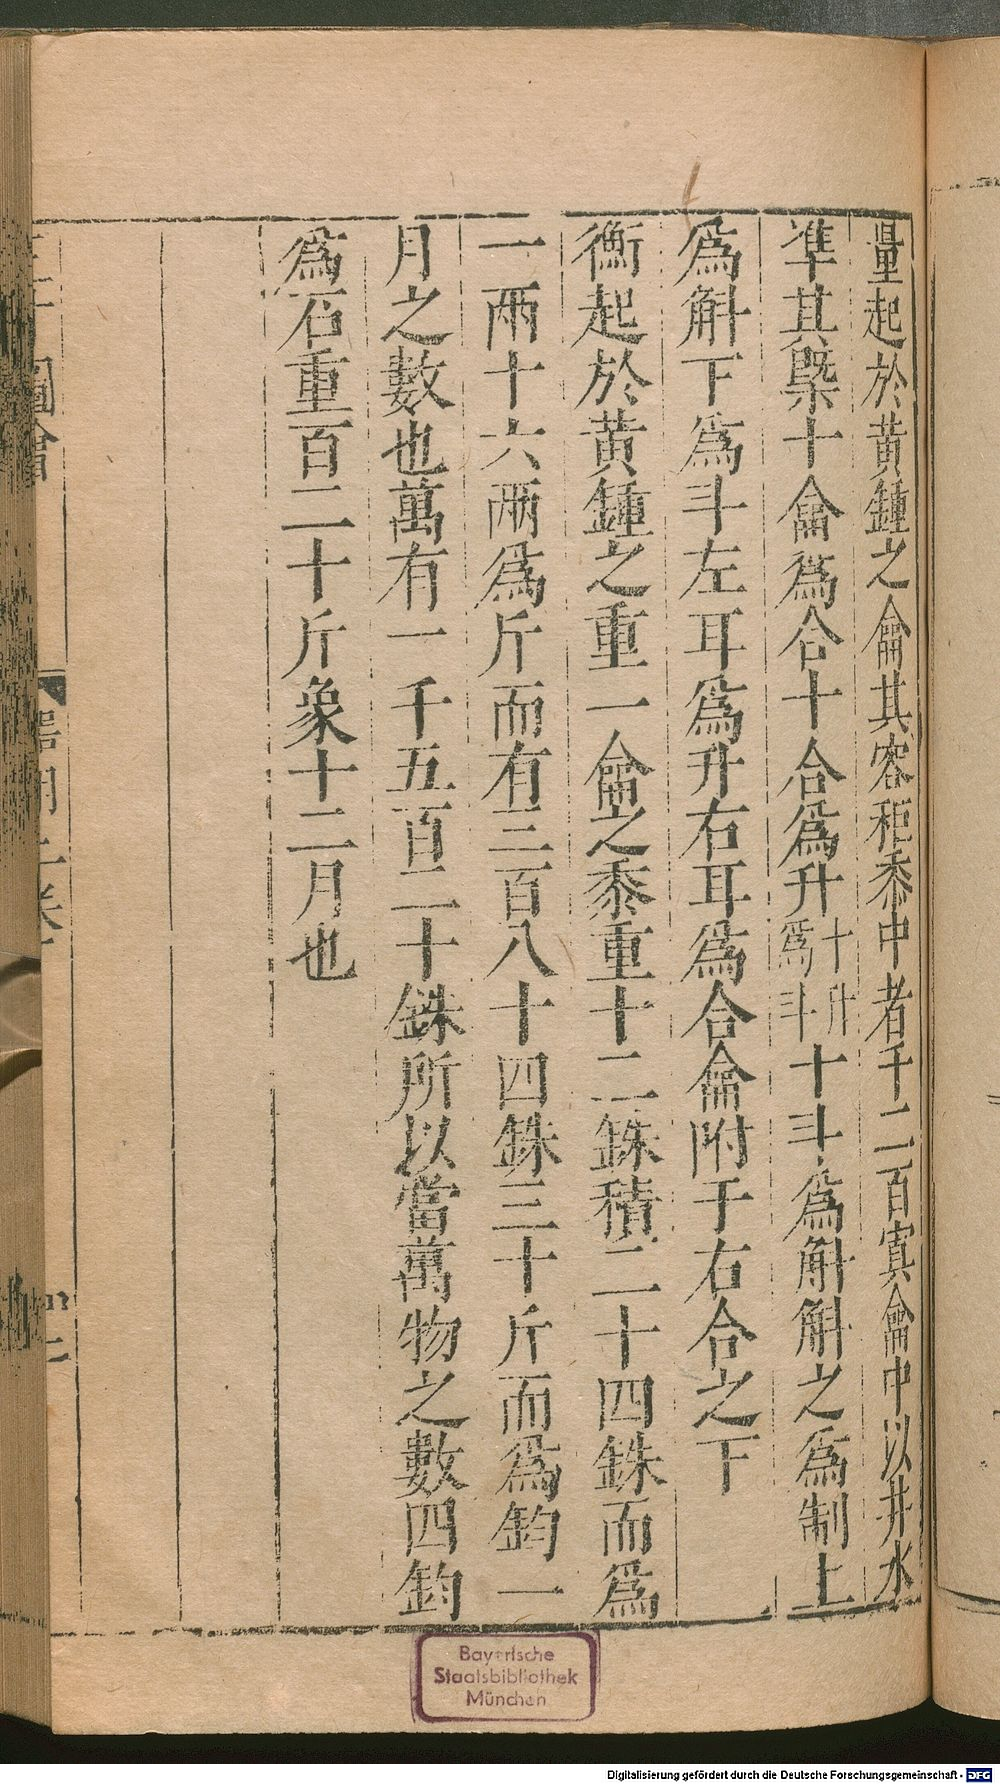 量起於黄鍾之龠其容秬黍中者千二百寘龠中以井水
準其槩十龠爲合十合爲升十升爲斗十斗爲斛斛之爲制上
爲斛下爲斗左耳爲升右耳爲合龠附于右合之下
衡起於黄鍾之重一龠之黍重十二銖積二十四銖而爲
一兩十六兩爲斤而有三百八十四銖三十斤而爲鈞一
月之數也萬有一千五百二十銖所以當萬物之數四鈞
爲石重百二十斤象十二月也
圖會
Bayerische
Staatsbibliothek
München
Digitalisierung gefördert durch die Deutsche Forschungsgemeinschaft - DFG